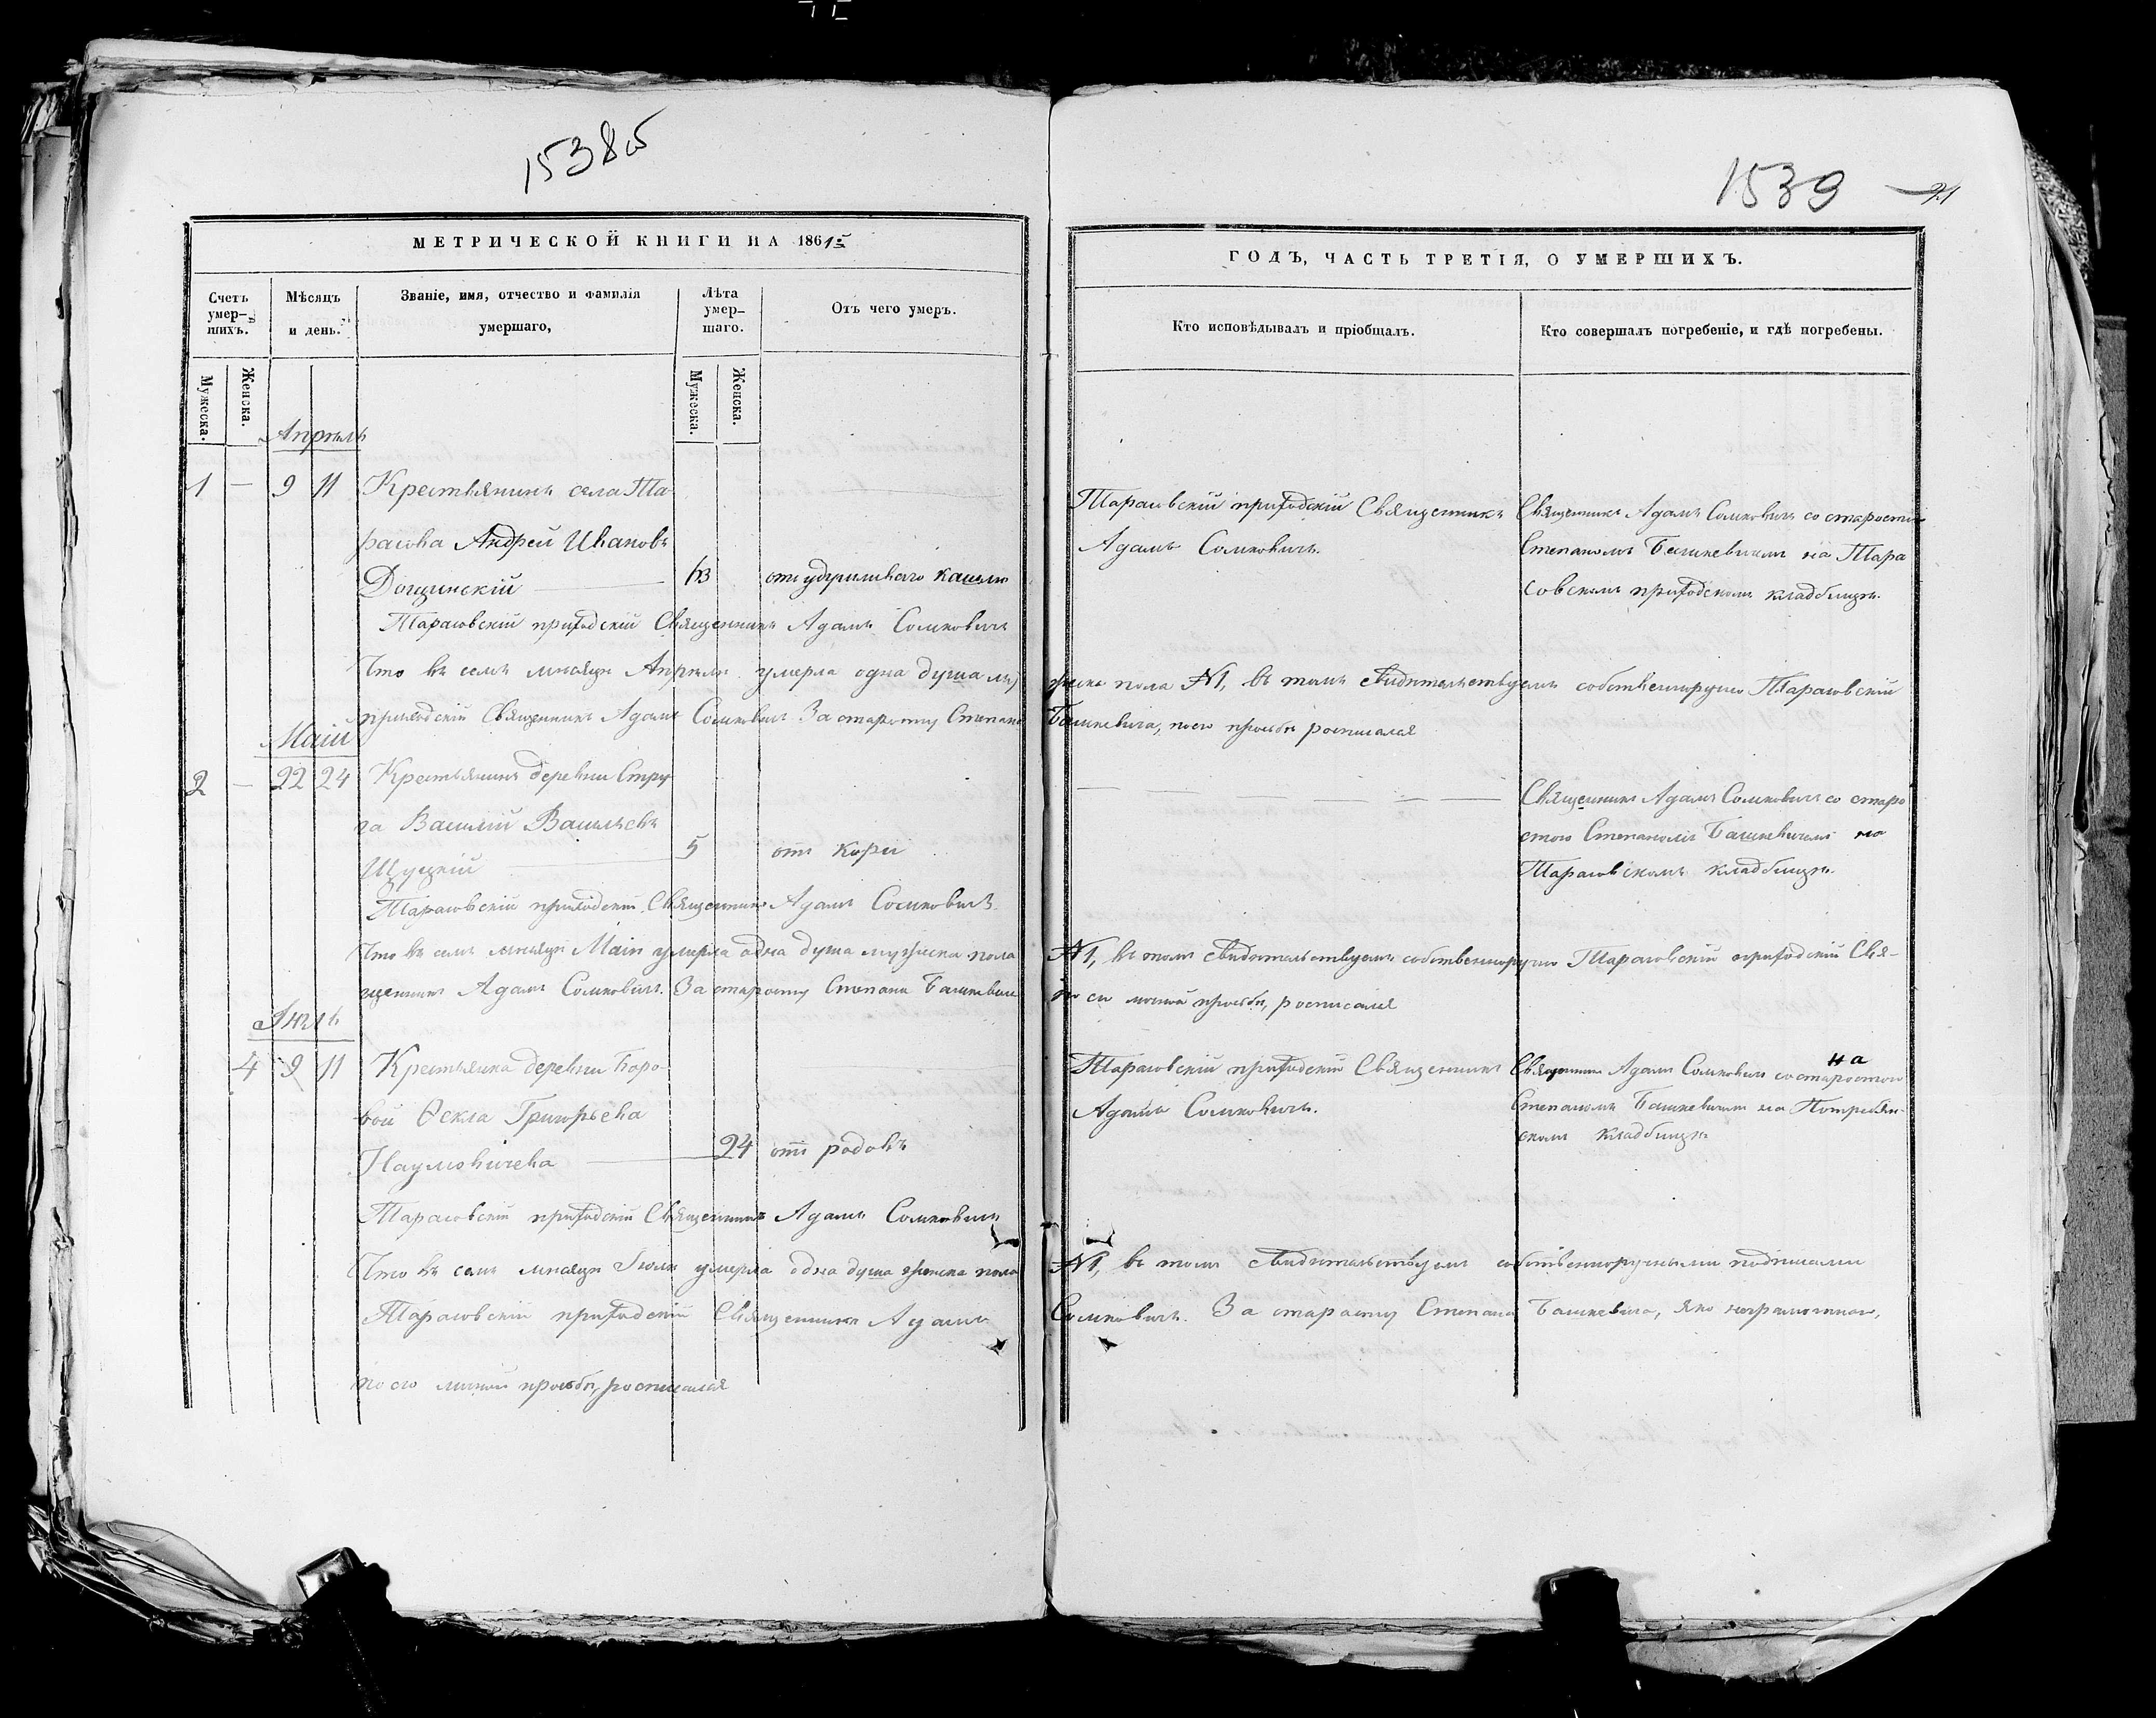 1538об
МЕТРИЧЕСКОЙ КНИГИ НА 1861й
Счетъ умершихъ.
Мѣсяцъ и день.
Званіе, имя, отчество и фамилія умершаго,
Лѣта умершаго.
Отъ чего умеръ.
Мужеска.
Женска.
Мужеска.
Женска.
Апрѣль
1 — 9 11 Крестьянинъ села Та-
расова Андрей Ивановъ
Дощинскій 63 отъ удушливаго кашлю
Тарасовскій приходскій Священникъ Адамъ Сомковичъ
Что въ семъ мѣсяцѣ Апрѣлѣ умерла одна душа му
приходскій Священникъ Адамъ Сомковичъ За старосту Степана
Маій
2 — 22 24 Крестьянинъ деревни Стру
га Василій Васильевъ
Щуцкій 5 отъ кори
Тарасовскій приходскій Священникъ Адамъ Сомковичъ
Что въ семъ мѣсяцѣ Маіи умерла одна душа мужеска пола
щенникъ Адамъ Сомковичъ. За старосту Степана Башкевича
Іюль
4 9 11 Крестьянка деревни Боро-
вой Ѳекла Григорьева
Наумовичева 24 отъ родовъ
Тарасовскій приходскій Священникъ Адамъ Сомковичъ
Что въ семъ мѣсяцѣ Іюлѣ умерла одна душа женска пола
Тарасовскій приходскій Священникъ Адамъ
по его личной просьбѣ, росписался
1539 21
ГОДЪ, ЧАСТЬ ТРЕТІЯ, О УМЕРШИХЪ.
Кто исповѣдывалъ и пріобщалъ.
Кто совершалъ погребеніе, и гдѣ погребены.
Тарасовскій приходскій Священникъ Священникъ Адамъ Сомковичъ со старостою
Адамъ Сомковичъ. Степаномъ Башкевичемъ на Тара
совскомъ приходскомъ кладбищѣ.
жеска пола №1, въ томъ свидѣтельствуемъ собственноручно Тарасовскій
Башкевича, по его просьбѣ росписался
Священникъ Адамъ Сомковичъ со старо
стою Степаномъ Башкевичемъ на
Тарасовскомъ кладбищѣ.
№1, въ томъ свидѣтельствуемъ собственноручно Тарасовскій приходскій Свя-
по его личной просьбѣ, росписался
Тарасовскій приходскій Священникъ Священникъ Адамъ Сомковичъ со старостою на
Адамъ Сомковичъ. Степаномъ Башкевичемъ на
скомъ кладбищѣ
№1, въ томъ свидѣтельствуемъ собственноручными подписами
Сомковичъ. За старосту Степана Башкевича, яко неграмотнаго,